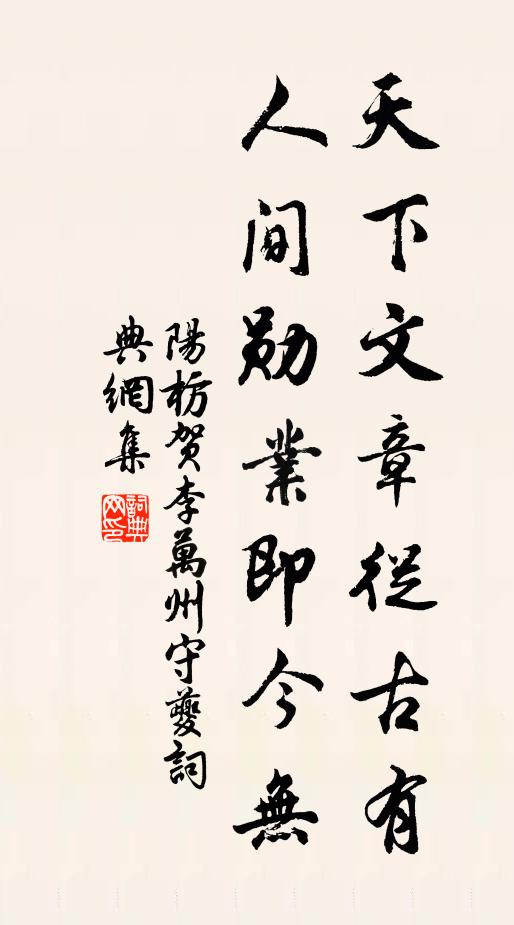 天下文章從古有
人間勛業即今無
陽枋賀李萬州守夔詞
典網集
詞典網印